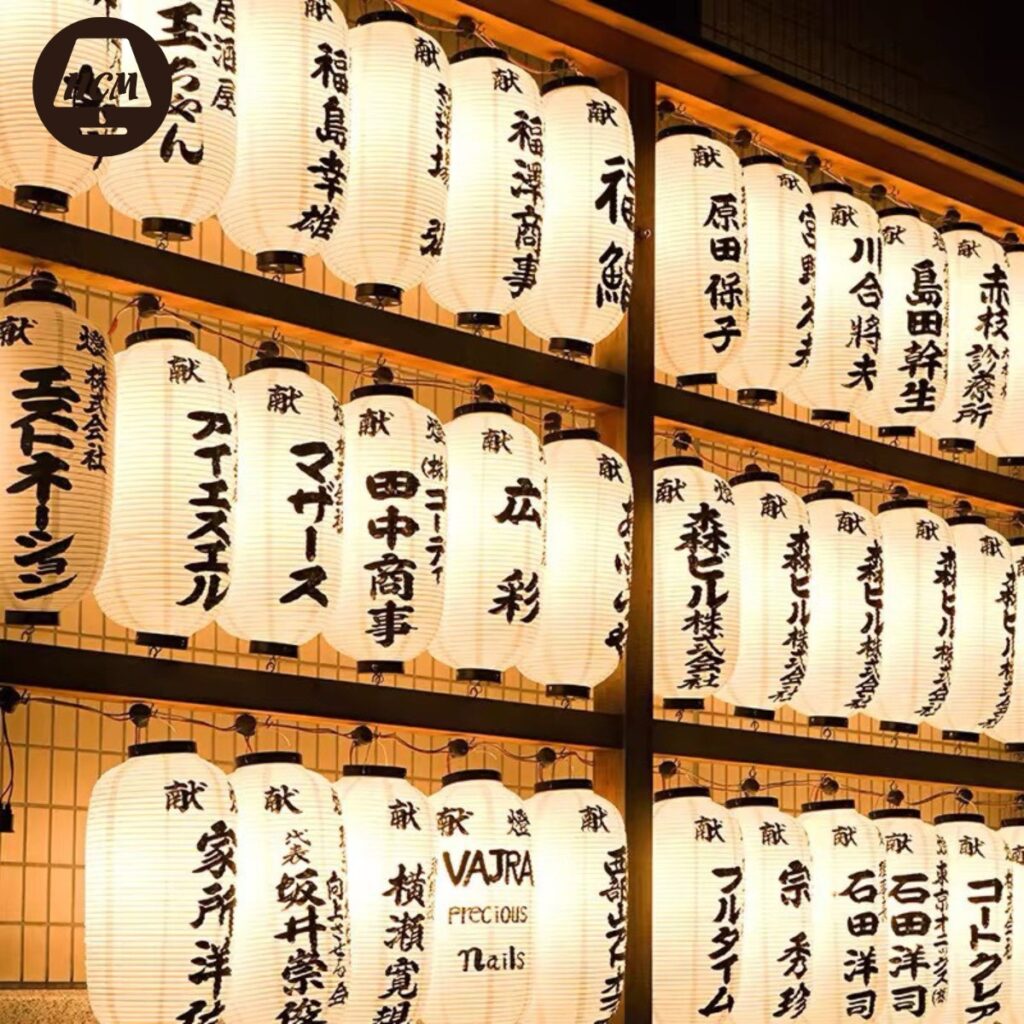 HCM
居酒屋
玉ちゃん
献
福島幸雄
献
献
福澤商事
献
福鮨
献
原田保子
献
宮野久夫
献
川合將夫
献
島田幹生
献
赤枝診療所
献燈
株式会社
エストネーション
献
アイエスエル
献
マザース
献燈
(株)コーディ
田中商事
献
広彩
献
献燈
森ビル株式会社
献
森ビル株式会社
献
森ビル株式会社
献
森ビル株式会社
献
森ビル株式会社
献
家所洋
献
代表
坂井崇俊
献
横瀬寛親
献燈
VAJRA
Precious
Nails
献
西部山
献
フルタイム
献
宗秀珍
献
石田洋司
献
石田洋司
東京オニックス(株)
献
コートクレア